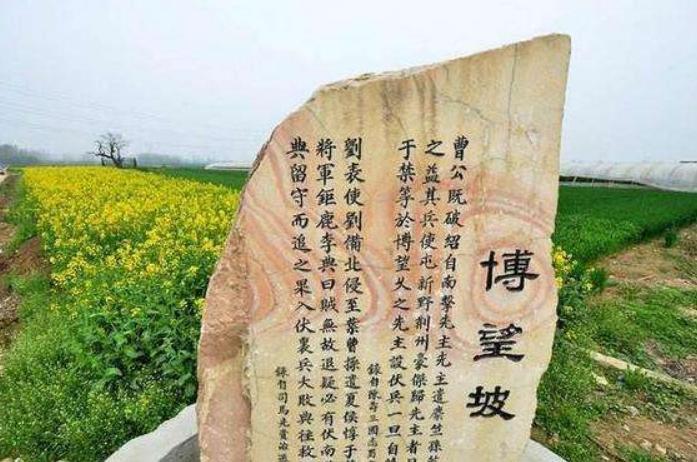 博望坡
曹公既破紹自南擊先主先主遣麋竺孫
之益其兵使屯新野荊州豪傑歸先主者日
于禁等於博望久之先主設伏兵一旦自燒
錄自陳壽三國志蜀
劉表使劉備北侵至葉曹操遣夏侯惇于
將軍鉅鹿李典曰賊無故退疑必有伏南
典留守而追之果入伏裏兵大敗典往救
錄自司馬光資治通